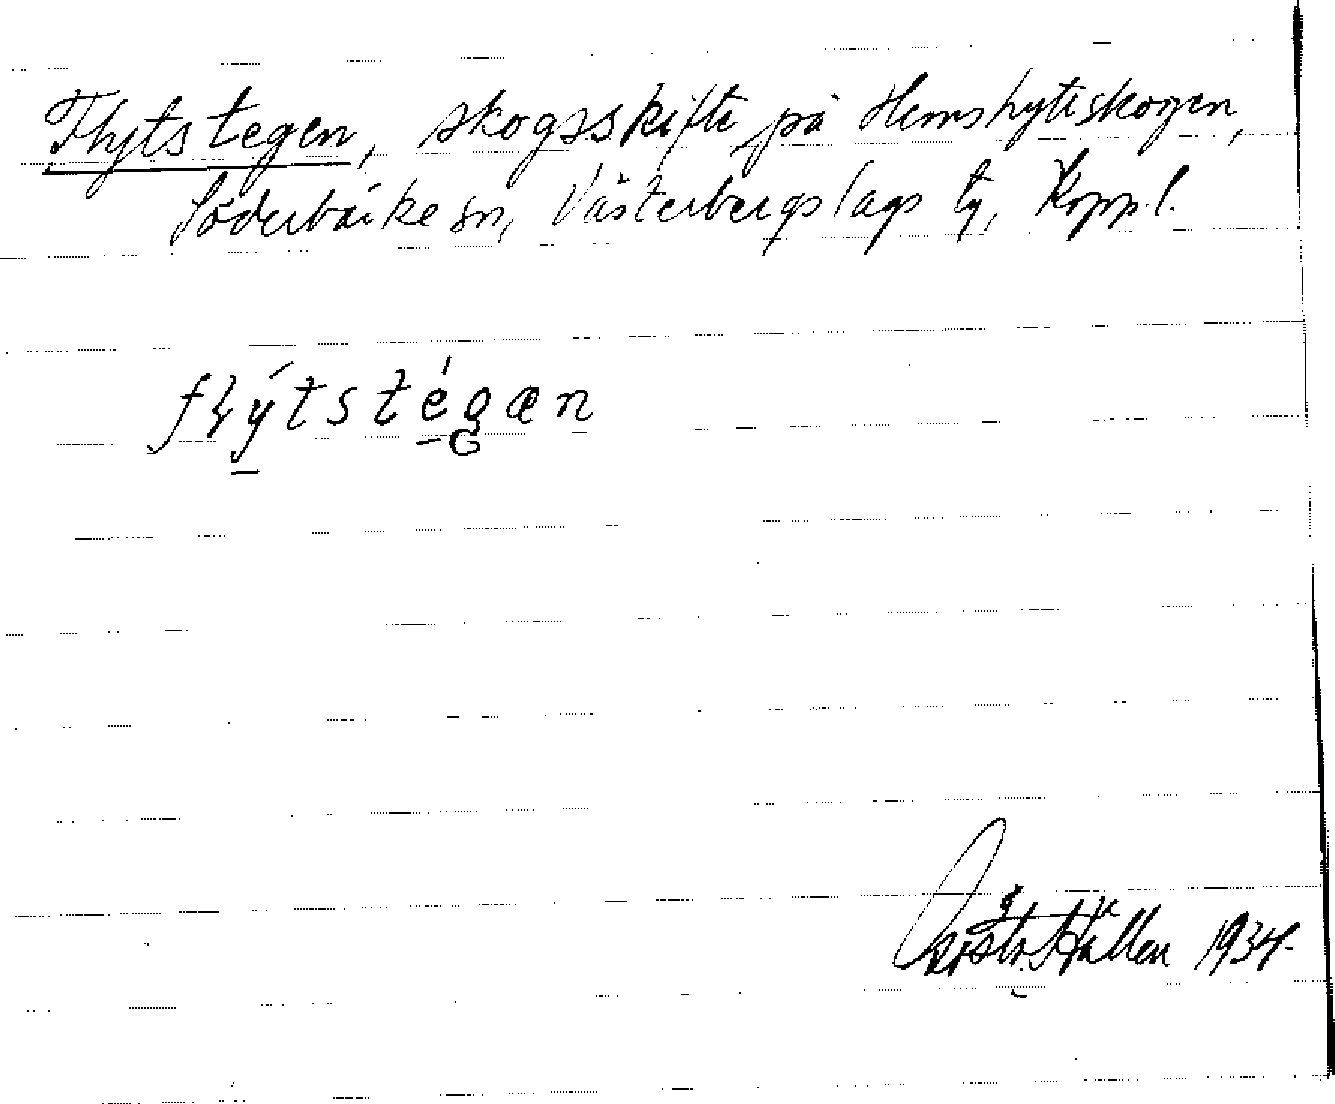 Flytstegen, skogsskifte på Hemshytteskogen,
Söderbärke sn, Västerbergslags tg, Kopp. l.
flýtstégæn
Hållen 1934.